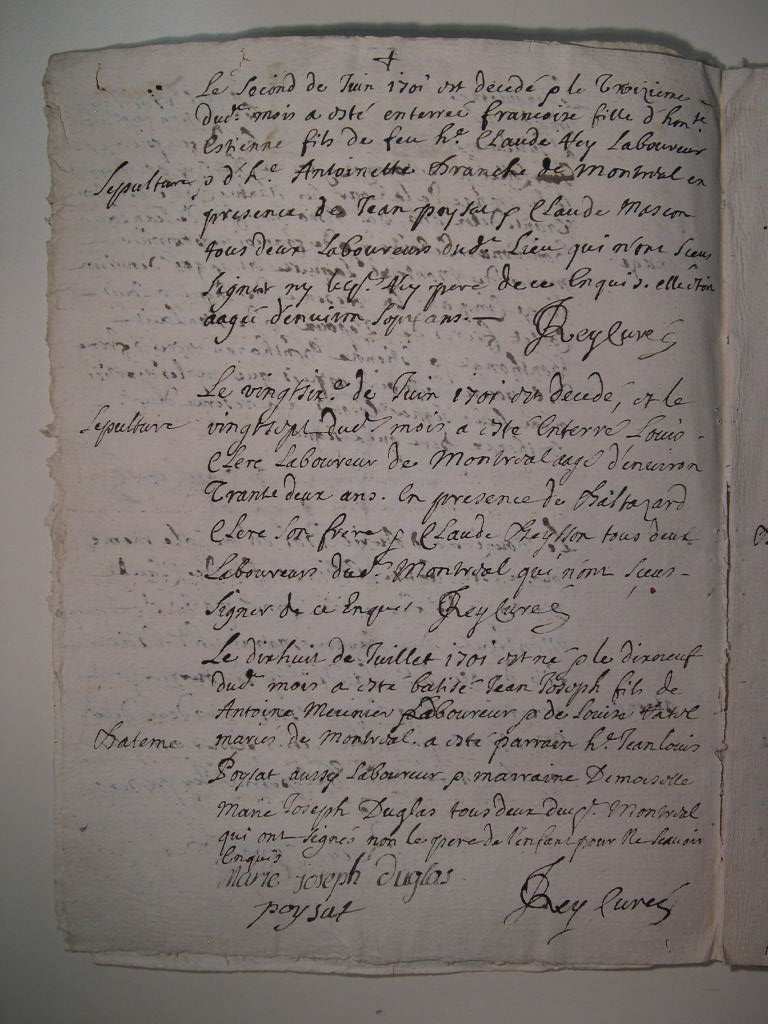 Le Second de Juin 1701 est decedé & le Troizieme
dud. mois a esté enterreé francoise fille d'hon.te
Estienne fils de feu h.e Claude Rey Laboureur
Sepulture & d'h.e Antoinette Branche de Montreal en
presence de Jean poysat & Claude Mascon
tous deux Laboureurs dud. Lieu qui n'ont sceus
signer ny led. Rey pere de ce Enquis. elle estoit
aagée d'environ sept ans.
Rey Curé
Le vingtsix.e de Juin 1701 est decedé, et le
Sepulture vingtsept dud. mois a esté Enterré Louis
Clerc Laboureur de Montreal aagé d'environ
Trante deux ans. En presence de Baltazard
Clerc son frere & Claude Beysson tous deux
Laboureurs dud. Montreal qui n'ont sceus
signer de ce Enquis Rey Curé
Le dixhuit de Juillet 1701 est né & le dixneuf
dud. mois a esté batisé Jean Joseph fils de
Antoine Meunier Laboureur & de Louise
Bateme mariés de Montreal. a esté parrain h.e Jean Louis
Poysat aussy Laboureur & marraine Demoiselle
Marie Joseph Duglas tous deux dud. Montreal
qui ont signés non le pere de l'enfant pour Ne Scavoir
Enquis
Marie joseph duglas
poysat Rey Curé